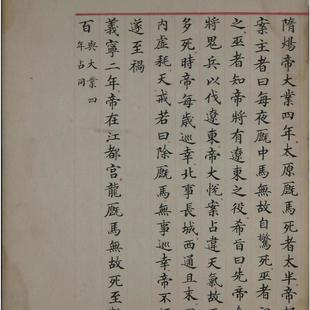 隋煬帝大業四年太原廐馬死者太半帝
案主者曰每夜廐中馬無故自驚死巫者
之巫者知帝將有遼東之役希旨曰先帝
將鬼兵以伐遼東帝大悅案占違天氣故
多死時帝每歲巡幸北事長城西通且末
內虛耗天戒若曰除廐馬無事巡幸帝不
遂至禍
義寧二年帝在江都宮龍廐馬無故死至
百與大業四
年占同